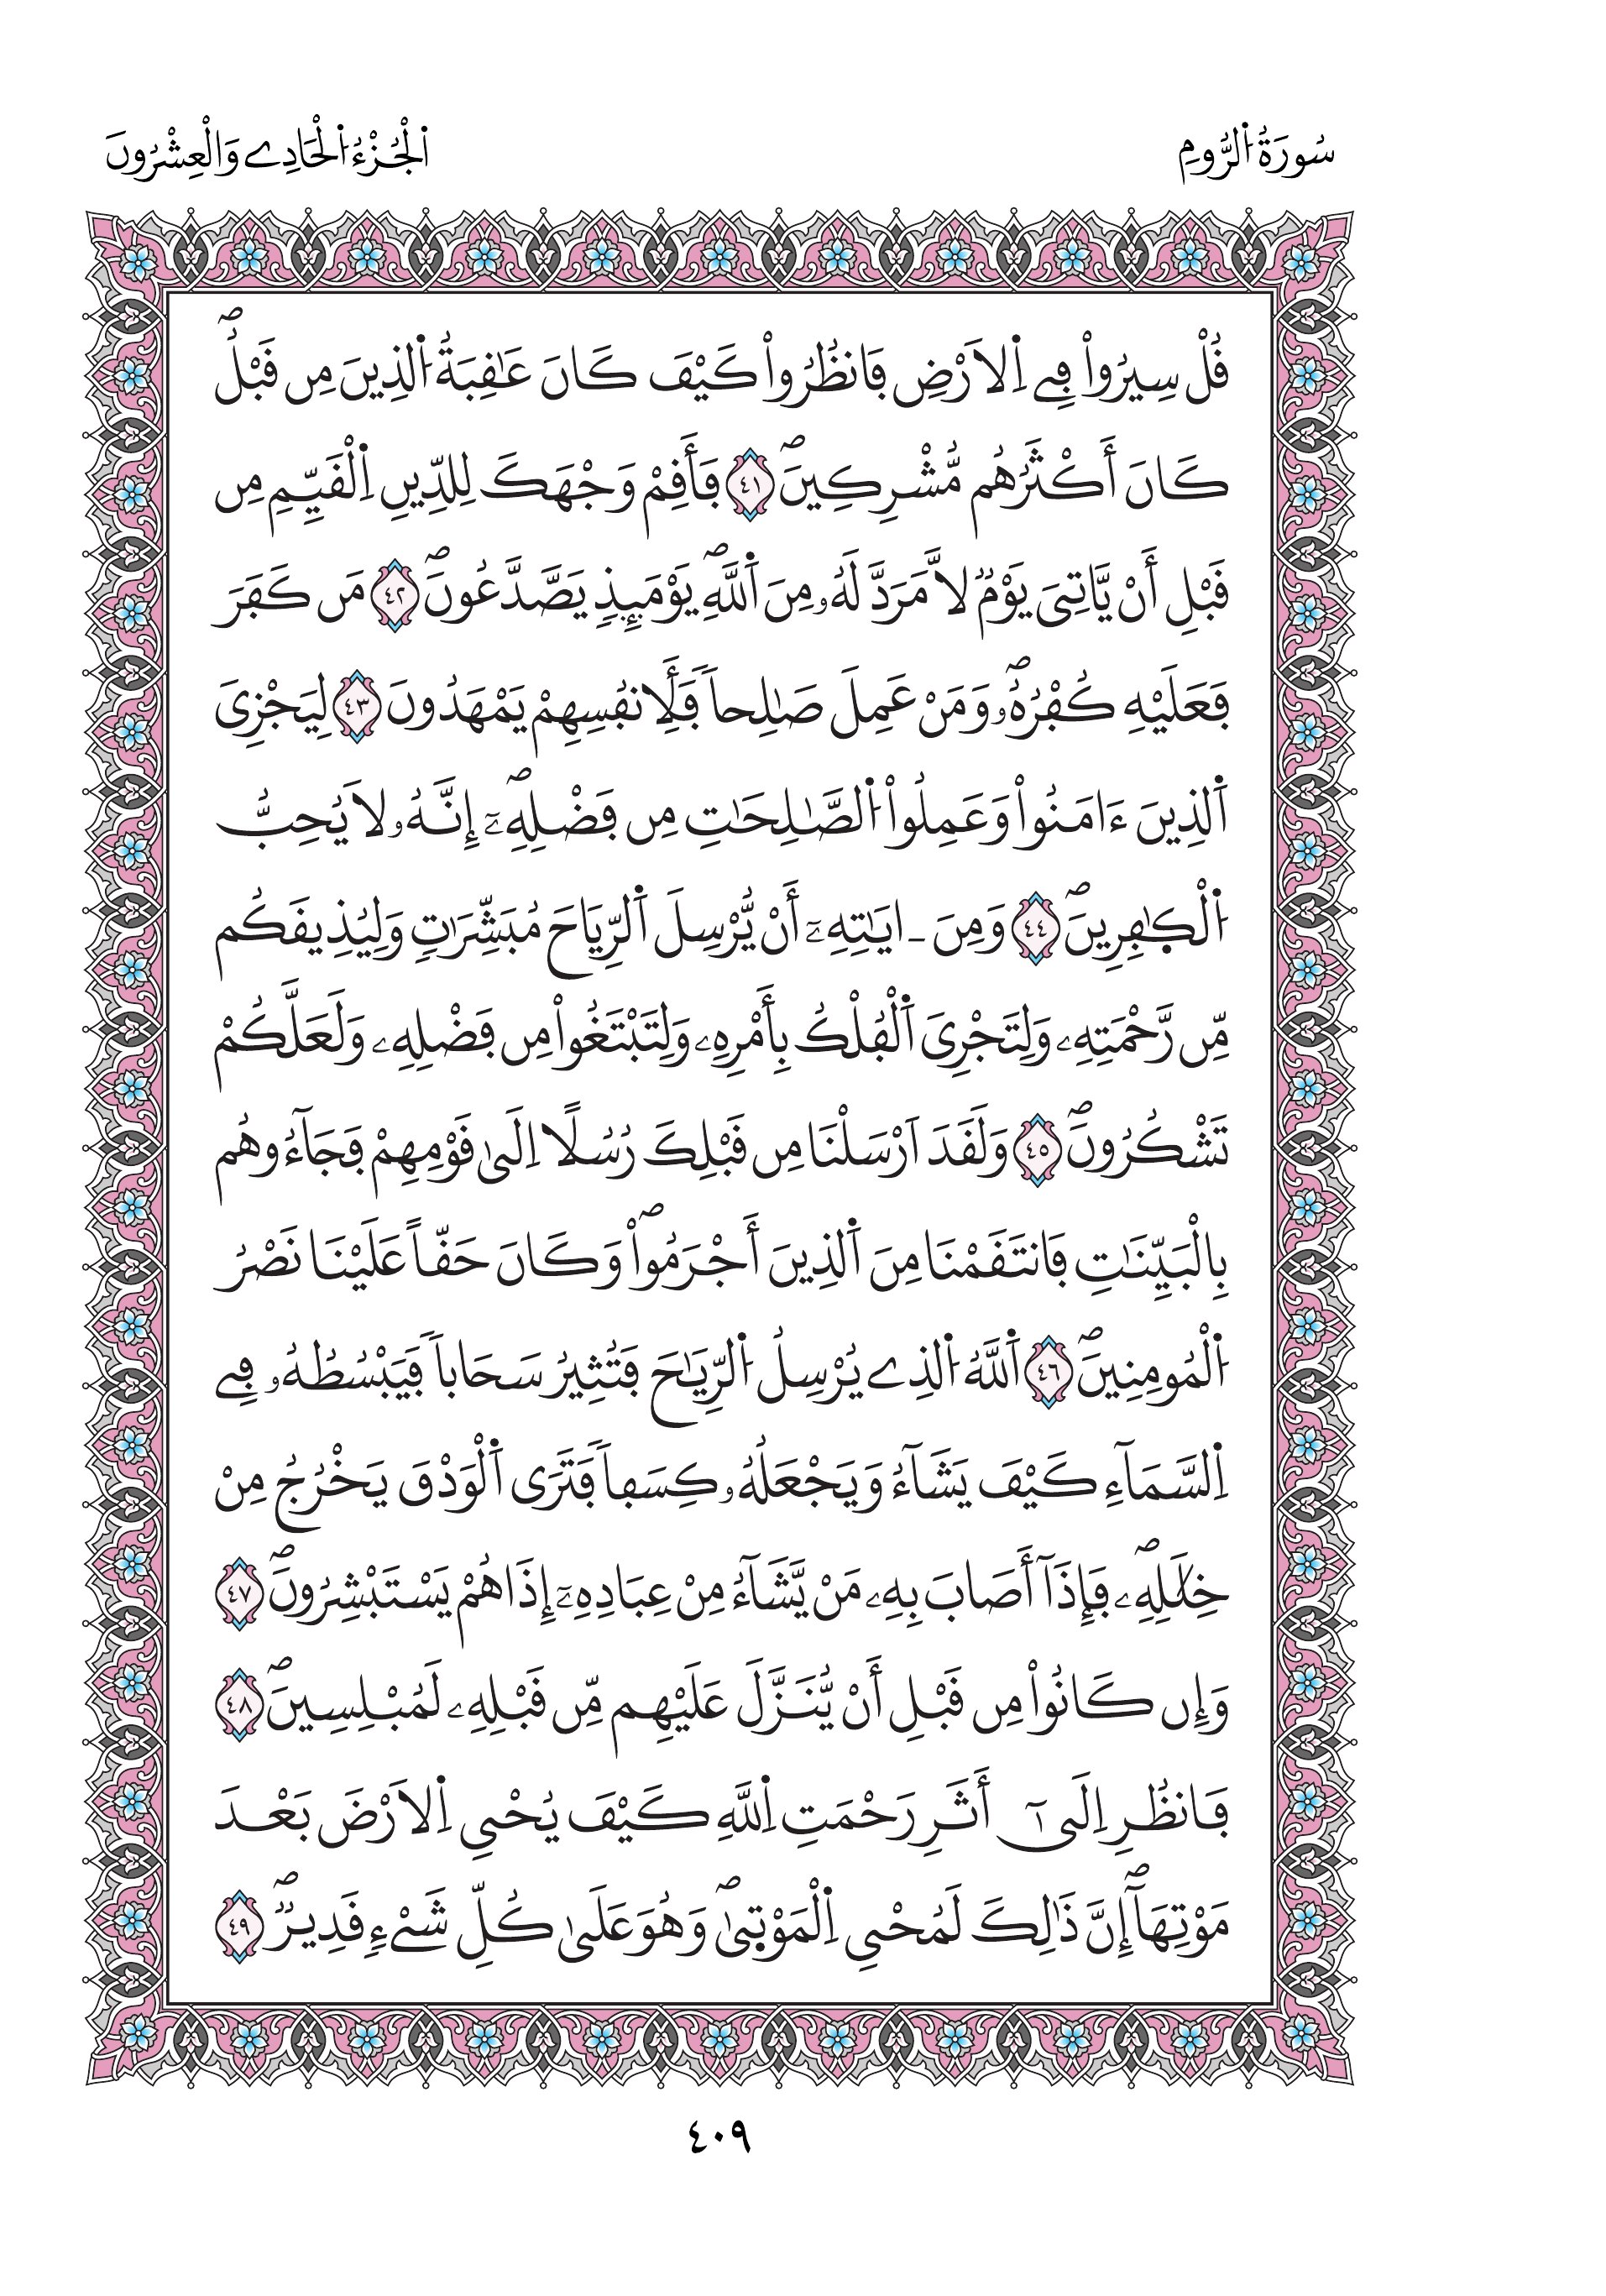 سُورَةُ اُ۬لرُّومِ
اَ۬لْجُزْءُ اُ۬لْحَادِے وَالْعِشْرُونَ
قُلْ سِيرُواْ فِے اِ۬لَارْضِ فَانظُرُواْ كَيْفَ كَانَ عَٰقِبَةُ اُ۬لذِينَ مِن قَبْلُۖ
كَانَ أَكْثَرُهُم مُّشْرِكِينَۖ ٤١ فَأَقِمْ وَجْهَكَ لِلدِّينِ اِ۬لْقَيِّمِ مِن
قَبْلِ أَنْ يَّاتِيَ يَوْمٞ لَّا مَرَدَّ لَهُۥ مِنَ اَ۬للَّهِۖ يَوْمَئِذٖ يَصَّدَّعُونَۖ ٤٢ مَن كَفَرَ
فَعَلَيْهِ كُفْرُهُۥۖ وَمَنْ عَمِلَ صَٰلِحاٗ فَلِأَنفُسِهِمْ يَمْهَدُونَ ٤٣ لِيَجْزِيَ
اَ۬لذِينَ ءَامَنُواْ وَعَمِلُواْ اُ۬لصَّٰلِحَٰتِ مِن فَضْلِهِۦٓۖ إِنَّهُۥ لَا يُحِبُّ
اُ۬لْكٰ۪فِرِينَۖ ٤٤ وَمِنَ ـ ايَٰتِهِۦٓ أَنْ يُّرْسِلَ اَ۬لرِّيَاحَ مُبَشِّرَٰتٖ وَلِيُذِيقَكُم
مِّن رَّحْمَتِهِۦ وَلِتَجْرِيَ اَ۬لْفُلْكُ بِأَمْرِهِۦ وَلِتَبْتَغُواْ مِن فَضْلِهِۦ وَلَعَلَّكُمْ
تَشْكُرُونَۖ ٤٥ وَلَقَدَ اَرْسَلْنَا مِن قَبْلِكَ رُسُلًا اِلَىٰ قَوْمِهِمْ فَجَآءُوهُم
بِالْبَيِّنَٰتِ فَانتَقَمْنَا مِنَ اَ۬لذِينَ أَجْرَمُواْۖ وَكَانَ حَقّاً عَلَيْنَا نَصْرُ
اُ۬لْمُومِنِينَۖ ٤٦ اَ۬للَّهُ اُ۬لذِے يُرْسِلُ اُ۬لرِّيَٰحَ فَتُثِيرُ سَحَاباٗ فَيَبْسُطُهُۥ فِے
اِ۬لسَّمَآءِ كَيْفَ يَشَآءُ وَيَجْعَلُهُۥ كِسَفاٗ فَتَرَى اَ۬لْوَدْقَ يَخْرُجُ مِنْ
خِلَٰلِهِۦۖ فَإِذَآ أَصَابَ بِهِۦ مَنْ يَّشَآءُ مِنْ عِبَادِهِۦٓ إِذَا هُمْ يَسْتَبْشِرُونَۖ ٤٧
وَإِن كَانُواْ مِن قَبْلِ أَنْ يُّنَزَّلَ عَلَيْهِم مِّن قَبْلِهِۦ لَمُبْلِسِينَۖ ٤٨
فَانظُرِ اِلَىٰٓ أَثَرِ رَحْمَتِ اِ۬للَّهِ كَيْفَ يُحْيِ اِ۬لَارْضَ بَعْدَ
مَوْتِهَآۖ إِنَّ ذَٰلِكَ لَمُحْيِ اِ۬لْمَوْت۪ىٰۖ وَهُوَ عَلَىٰ كُلِّ شَےْءٖ قَدِيرٞۖ ٤٩
٤٠٩